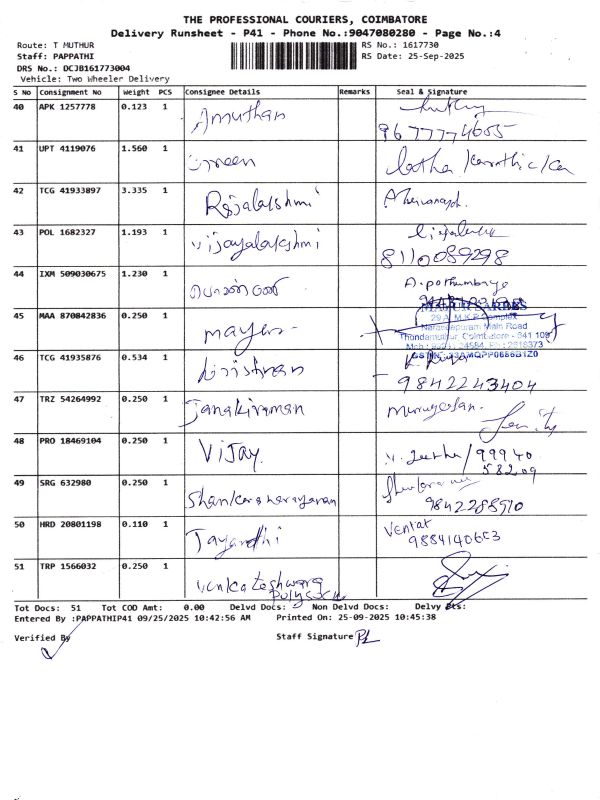 THE PROFESSIONAL COURIERS, COIMBATORE
Delivery Runsheet - P41 - Phone No.:9047080280 - Page No.:4
Route: T MUTHUR
RS No.: 1617730
Staff: PAPPATHI
RS Date: 25-Sep-2025
DRS No.: DCJB161773004
Vehicle: Two Wheeler Delivery
S No Consignment No Weight PCS Consignee Details Remarks Seal & Signature
40 APK 1257778 0.123 1 Amuthan
9677774605
41 UPT 4119076 1.560 1
42 TCG 41933897 3.335 1 Rajalakshmi
43 POL 1682327 1.193 1 Vijayalakshmi
8110089298
44 IXM 509030675 1.230 1
45 MAA 870842836 0.250 1 mayur
29 A, M.K.P Complex
Narasipuram Main Road
Thondamuthur, Coimbatore - 641 109
46 TCG 41935876 0.534 1 Krishnan
9842243404
47 TRZ 54264992 0.250 1 Janakiraman murugesan.
48 PRO 18469104 0.250 1 Vijay. 99940
58209
49 SRG 632980 0.250 1 Shankaranarayanan
9842288910
50 HRD 20801198 0.110 1 Jayanthi
51 TRP 1566032 0.250 1 Venkateshwara
Tot Docs: 51 Tot COD Amt: 0.00 Delvd Docs: Non Delvd Docs: Delvy Pts:
Entered By :PAPPATHIP41 09/25/2025 10:42:56 AM Printed On: 25-09-2025 10:45:38
Verified By Staff Signature